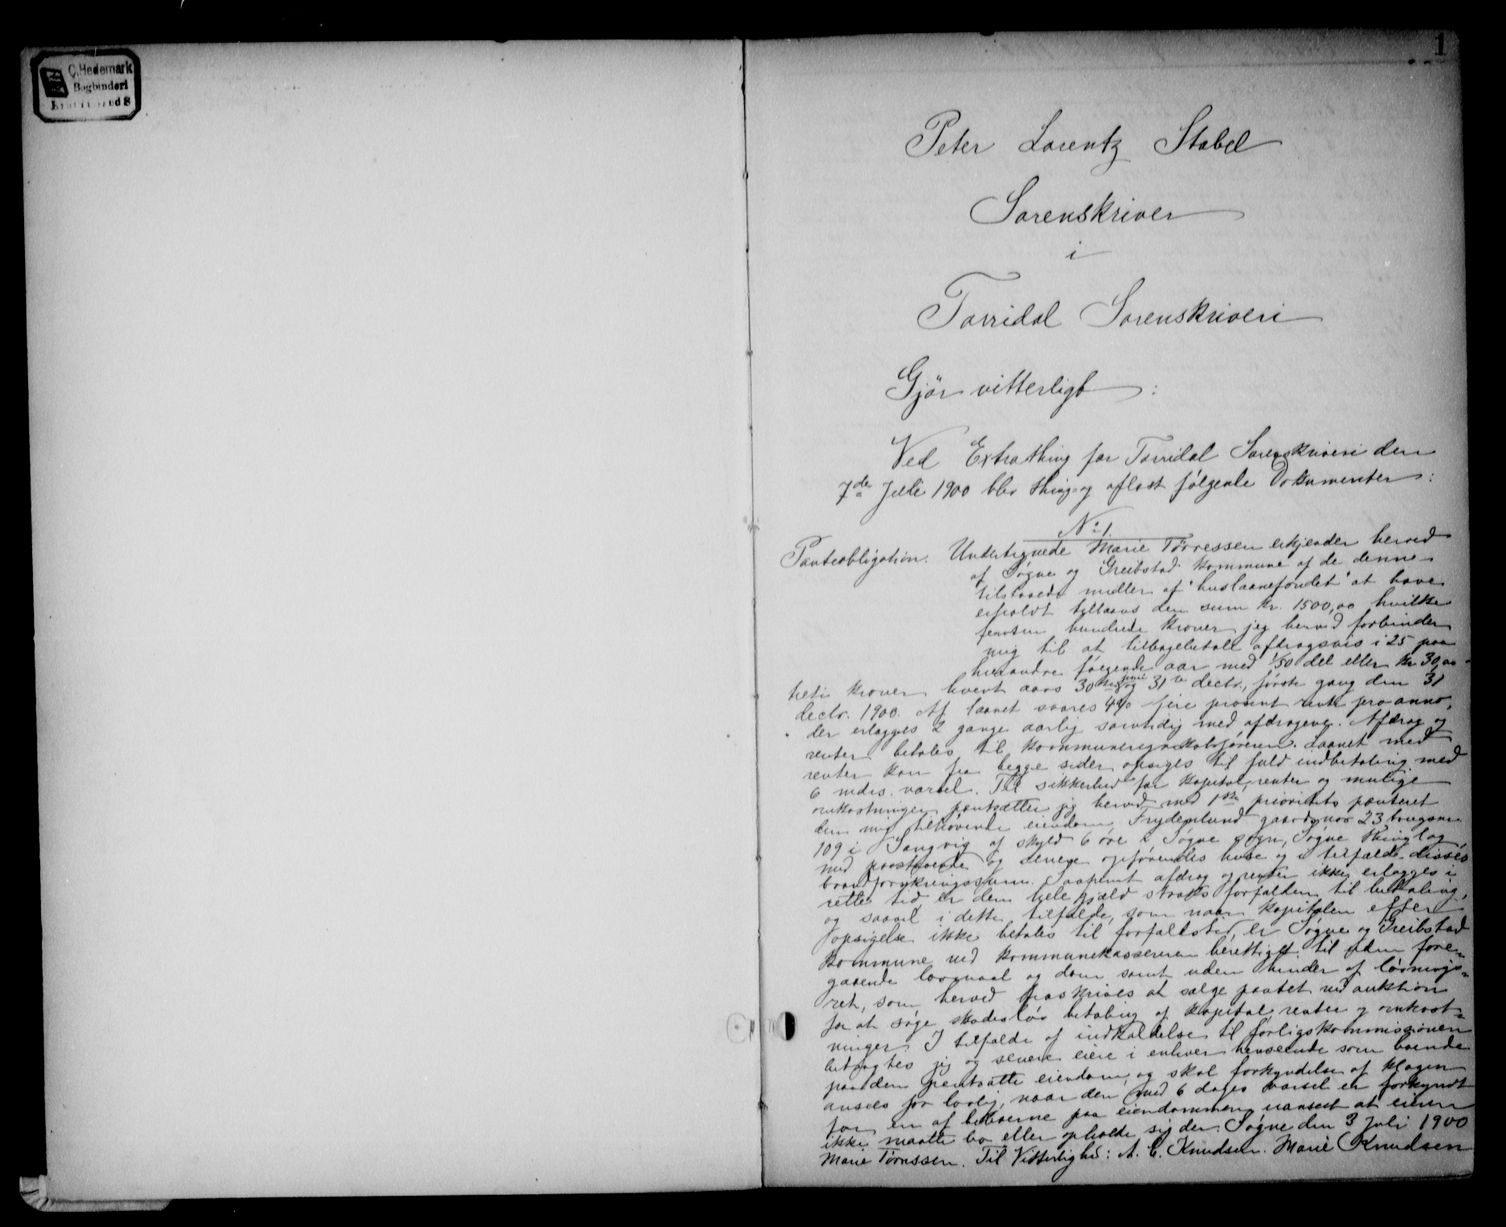 C. Hedemark
Bogbinderi
1
Peter Lorentz Stabel
Sorenskriver
i
Torridal Sorenskriveri
Gjör vitterligt :
Ved Extrathing for Torridal Sorenskriveri den
7de Juli 1900 blev thing- og aflæst følgende Dokumenter :
No 1.
Panteobligation. Undertegnede Marie Tørressen erkjender herved
af Søgne og Greibstad kommune af de denne
tilstaaede midler af "huslaanefondet" at have
erholdt tyllaans den sum kr. 1500,00 hvilke
femten hundrede kroner jeg herved forbinder
mig til at tilbagebetale afdragsvis i 25 paa
hverandre følgende aar med 1/50 del eller kr 30,00
treti kroner hvert aars 30te juni og 31te decbr., første gang den 31
decbr. 1900. Af laanet svares 4% fire procent rente pro anno,
der erlægges 2 gange aarlig samtidig med afdragene. Afdrag og
renter betales til kommuneregnskabsføreren. Laanet med
renter kan fra begge sider opsiges til fuld indbetaling med
6 mdrs. varsel. Til sikkerhed for kapital, renter og mulige
omkostninger pantsætter jeg herved med 1ste prioritets panteret
den mig tilhørende eiendom Frydenlund gaards nor 23 brugsnr
109 i Langvig af skyld 6 øre i Søgne sogn, Søgne thinglag,
med paastaaende og senere opførendes huse og i tilfælde disses
brandforsikringssum. Saafremt afdrag og renter ikke erlægges i
rette tid er den hele gjæld straks forfalden til betaling,
og saavel i dette tilfælde, som naar kapitalen efter
opsigelse ikke betales til forfaldstid, er Søgne og Greibstad
kommune ved kommunekassereren berettiget til uden fore-
gaaende lovmaal og dom samt uden hinder af løsnings-
ret, som herved fraskrives at sælge pantet ved auktion
for at søge skadesløs betaling af kapital, renter og omkost-
ninger. I tilfælde af indkaldelse til forligskommissionen
betragtes jeg og senere eiere i enhver henseende som boende
paa den pantsatte eiendom, og skal forkyndelse af klagen
ansees for lovlig, naar den med 6 dages varsel er forkyndt
for en af beboerne paa eiendommen uanseet at eieren
ikke maatte bo eller opholde sig der. Søgne den 3 Juli 1900
Marie Tørressen. Til Vitterlighed: A. C. Knudsen. Marie Knudsen